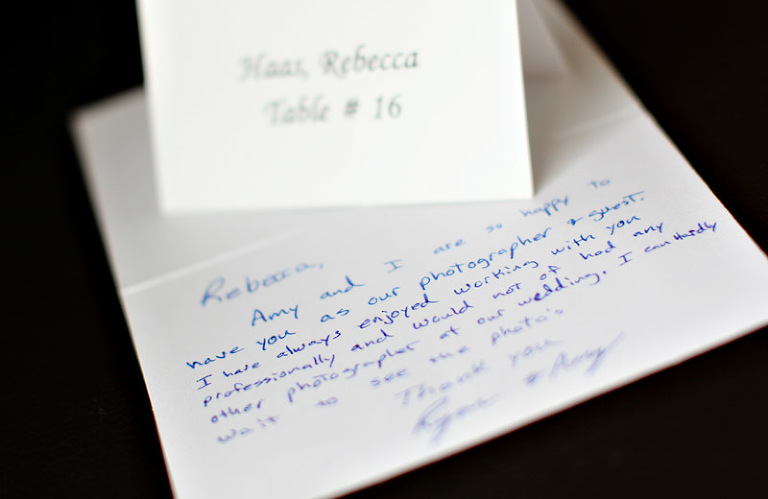 Haas, Rebecca
Table # 16
Rebecca,
Amy and I are so happy to
have you as our photographer & guest.
I have always enjoyed working with you
professionally and would not of had any
other photographer at our wedding. I can Hardly
wait to see the photo's
Thank you
Ryan & Amy